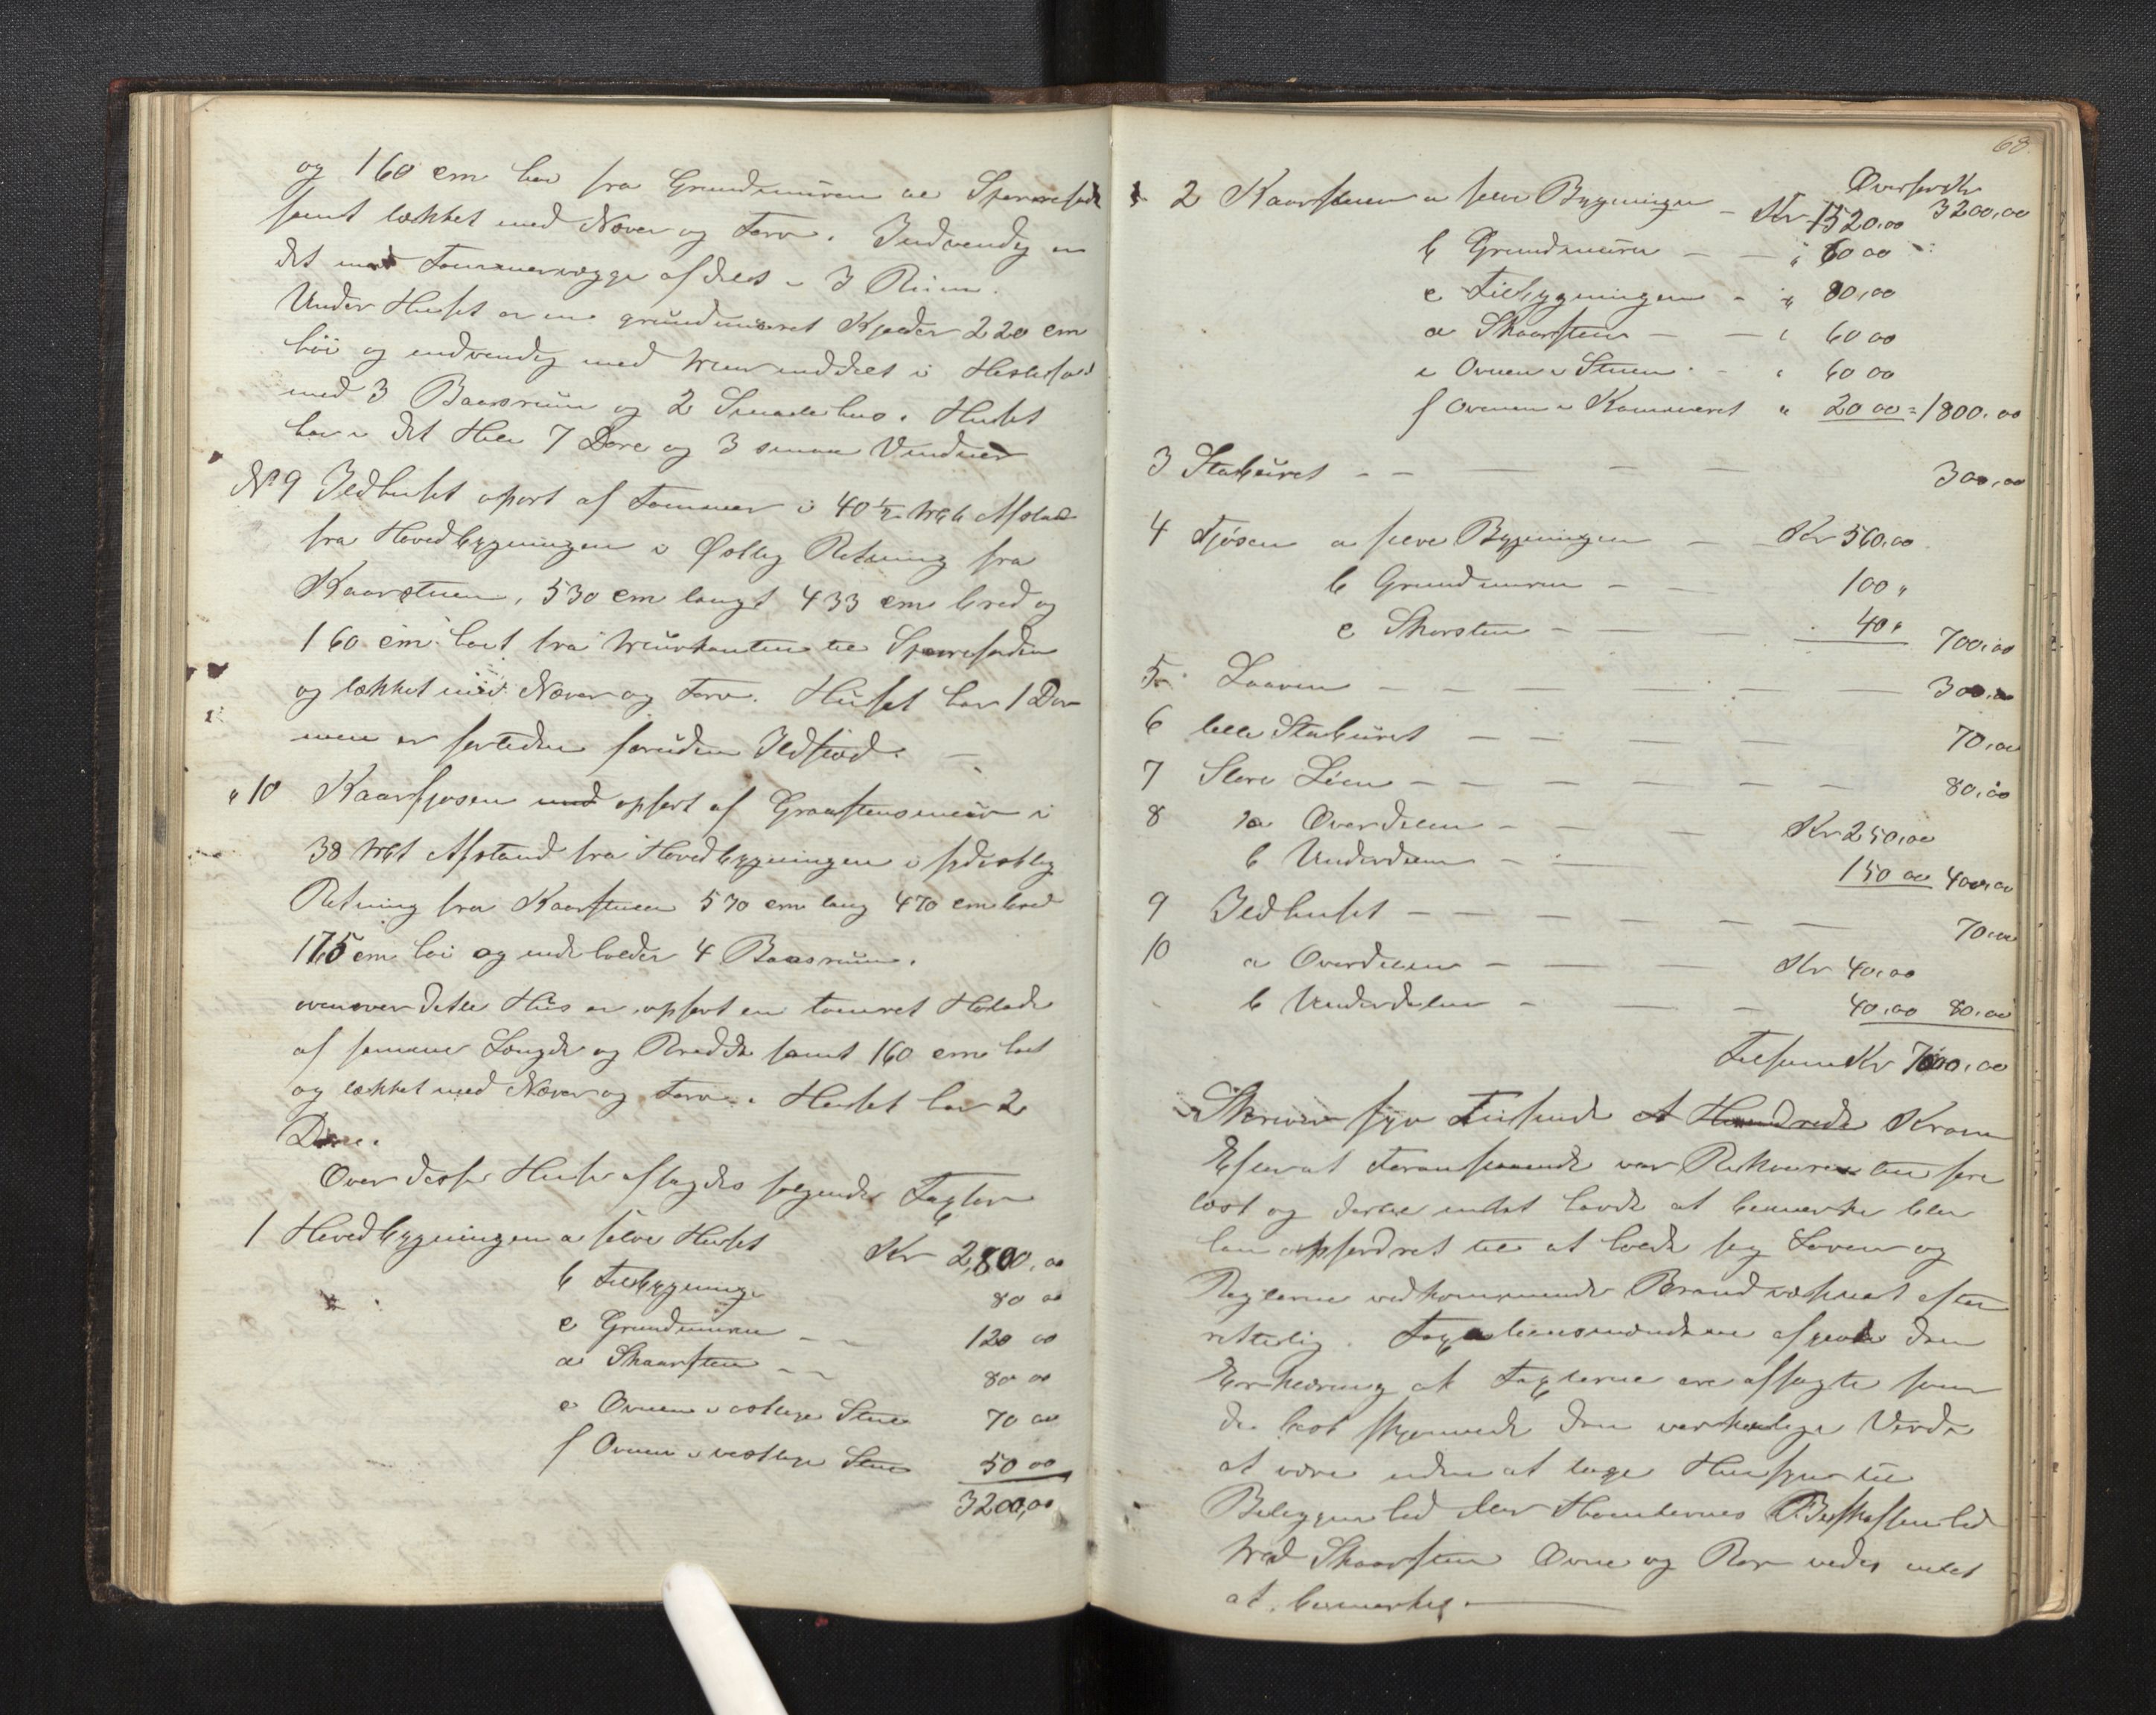 og 160 cm høi fra Grundmuren til Sparrefod
samt tækket med Næver og Torv. Indvendig er
det med Tømmervægge afdelt i 3 Rum.
Under Huset er en grundmuret Kjelder 220 cm
høi og indvendig med Muur inddelt i Hestefjøs
med 3 Baasrum og 2 Smaalehus. Huset
har i det Hele 7 Døre og 3 smaa Vinduer
No 9 Ildhuset opført af Tømmer i 40 1/2 Met Afstand
fra Hovedbygningen i Østlig Retning fra
Kaarstuen, 530 cm langt 433 cm bred og
160 cm høit fra Muurkanten til Sparrefoden
og tækket med Næver og Torv. Huset har 1 Dør
men er fortiden foruden Ildsted.
" 10 Kaarfjøsen med opført af Graastensmuur i
38 Met Afstand fra Hovedbygningen i sydøstlig
Retning fra Kaarstuen 570 cm lang 470 cm bred
175 cm høi og indeholder 4 Baasrum.
ovenover dette Hus er opført en tømret Hølade
af samme Længde og Bredde samt 160 cm høit
og tækket med Næver og Torv. Huset har 2
Døre.
Over disse Huse afsagdes følgende Taxter
1 Hovedbygningen a selve Huset Kr 2,800,00
b Tilbygning 80 00
c Grundmuren - - 120 00
d Skaarsten - - 80 00
e Ovnen i østlige Stue 70 00
f Ovnen i vestlige Stue 50 00
3200,00
68.
Overført Kr
2 Kaarstuen a selve Bygningen - Kr 1520,00 3200,00
b Grundmuren - - " 60 00
c Tilbygningen - " 80,00
d Skaarsten - - " 60 00
e Ovnen i Stuen - " 60 00
f Ovnen i Kammeret " 20 00 = 1800,00
3 Stabburet - - - - 300,00
4 Fjøsen a selve Bygningen - Kr 560,00
b Grundmuren - - 100 "
c Skorsten - - - 40 " 700,00
5 Laaven - - - - - - 300,00
6 lille Stabburet - - - - - 70,00
7 Store Løen - - - - - - 80,00
8 a Overdelen - - - Kr 250,00
b Underdelen - - 150 00 400,00
9 Ildhuset - - - - - - 70,00
10 a Overdelen - - - Kr 40,00
b Underdelen - - - 40,00 80,00
Tilsam Kr 7000,00
Skriver syv Tusinde et Hundrede Kroner
Efterat Foranstaaende var Rekvirenten fore
læst og dertil intet havde at bemærke blev
han opfordret til at holde sig Loven og
Reglerne vedkommende Brandvæsenet efter
rettelig. Taxationsmændene afgave den
Erklæring at Taxterne ere afsagte som
de bedst skjønnede den virkelige Værdi
at være uden at tage Hensyn til
Beliggenhed eller Tomternes Beskaffenhed
Med Skaarsten Ovne og Rør vides intet
at bemærke.